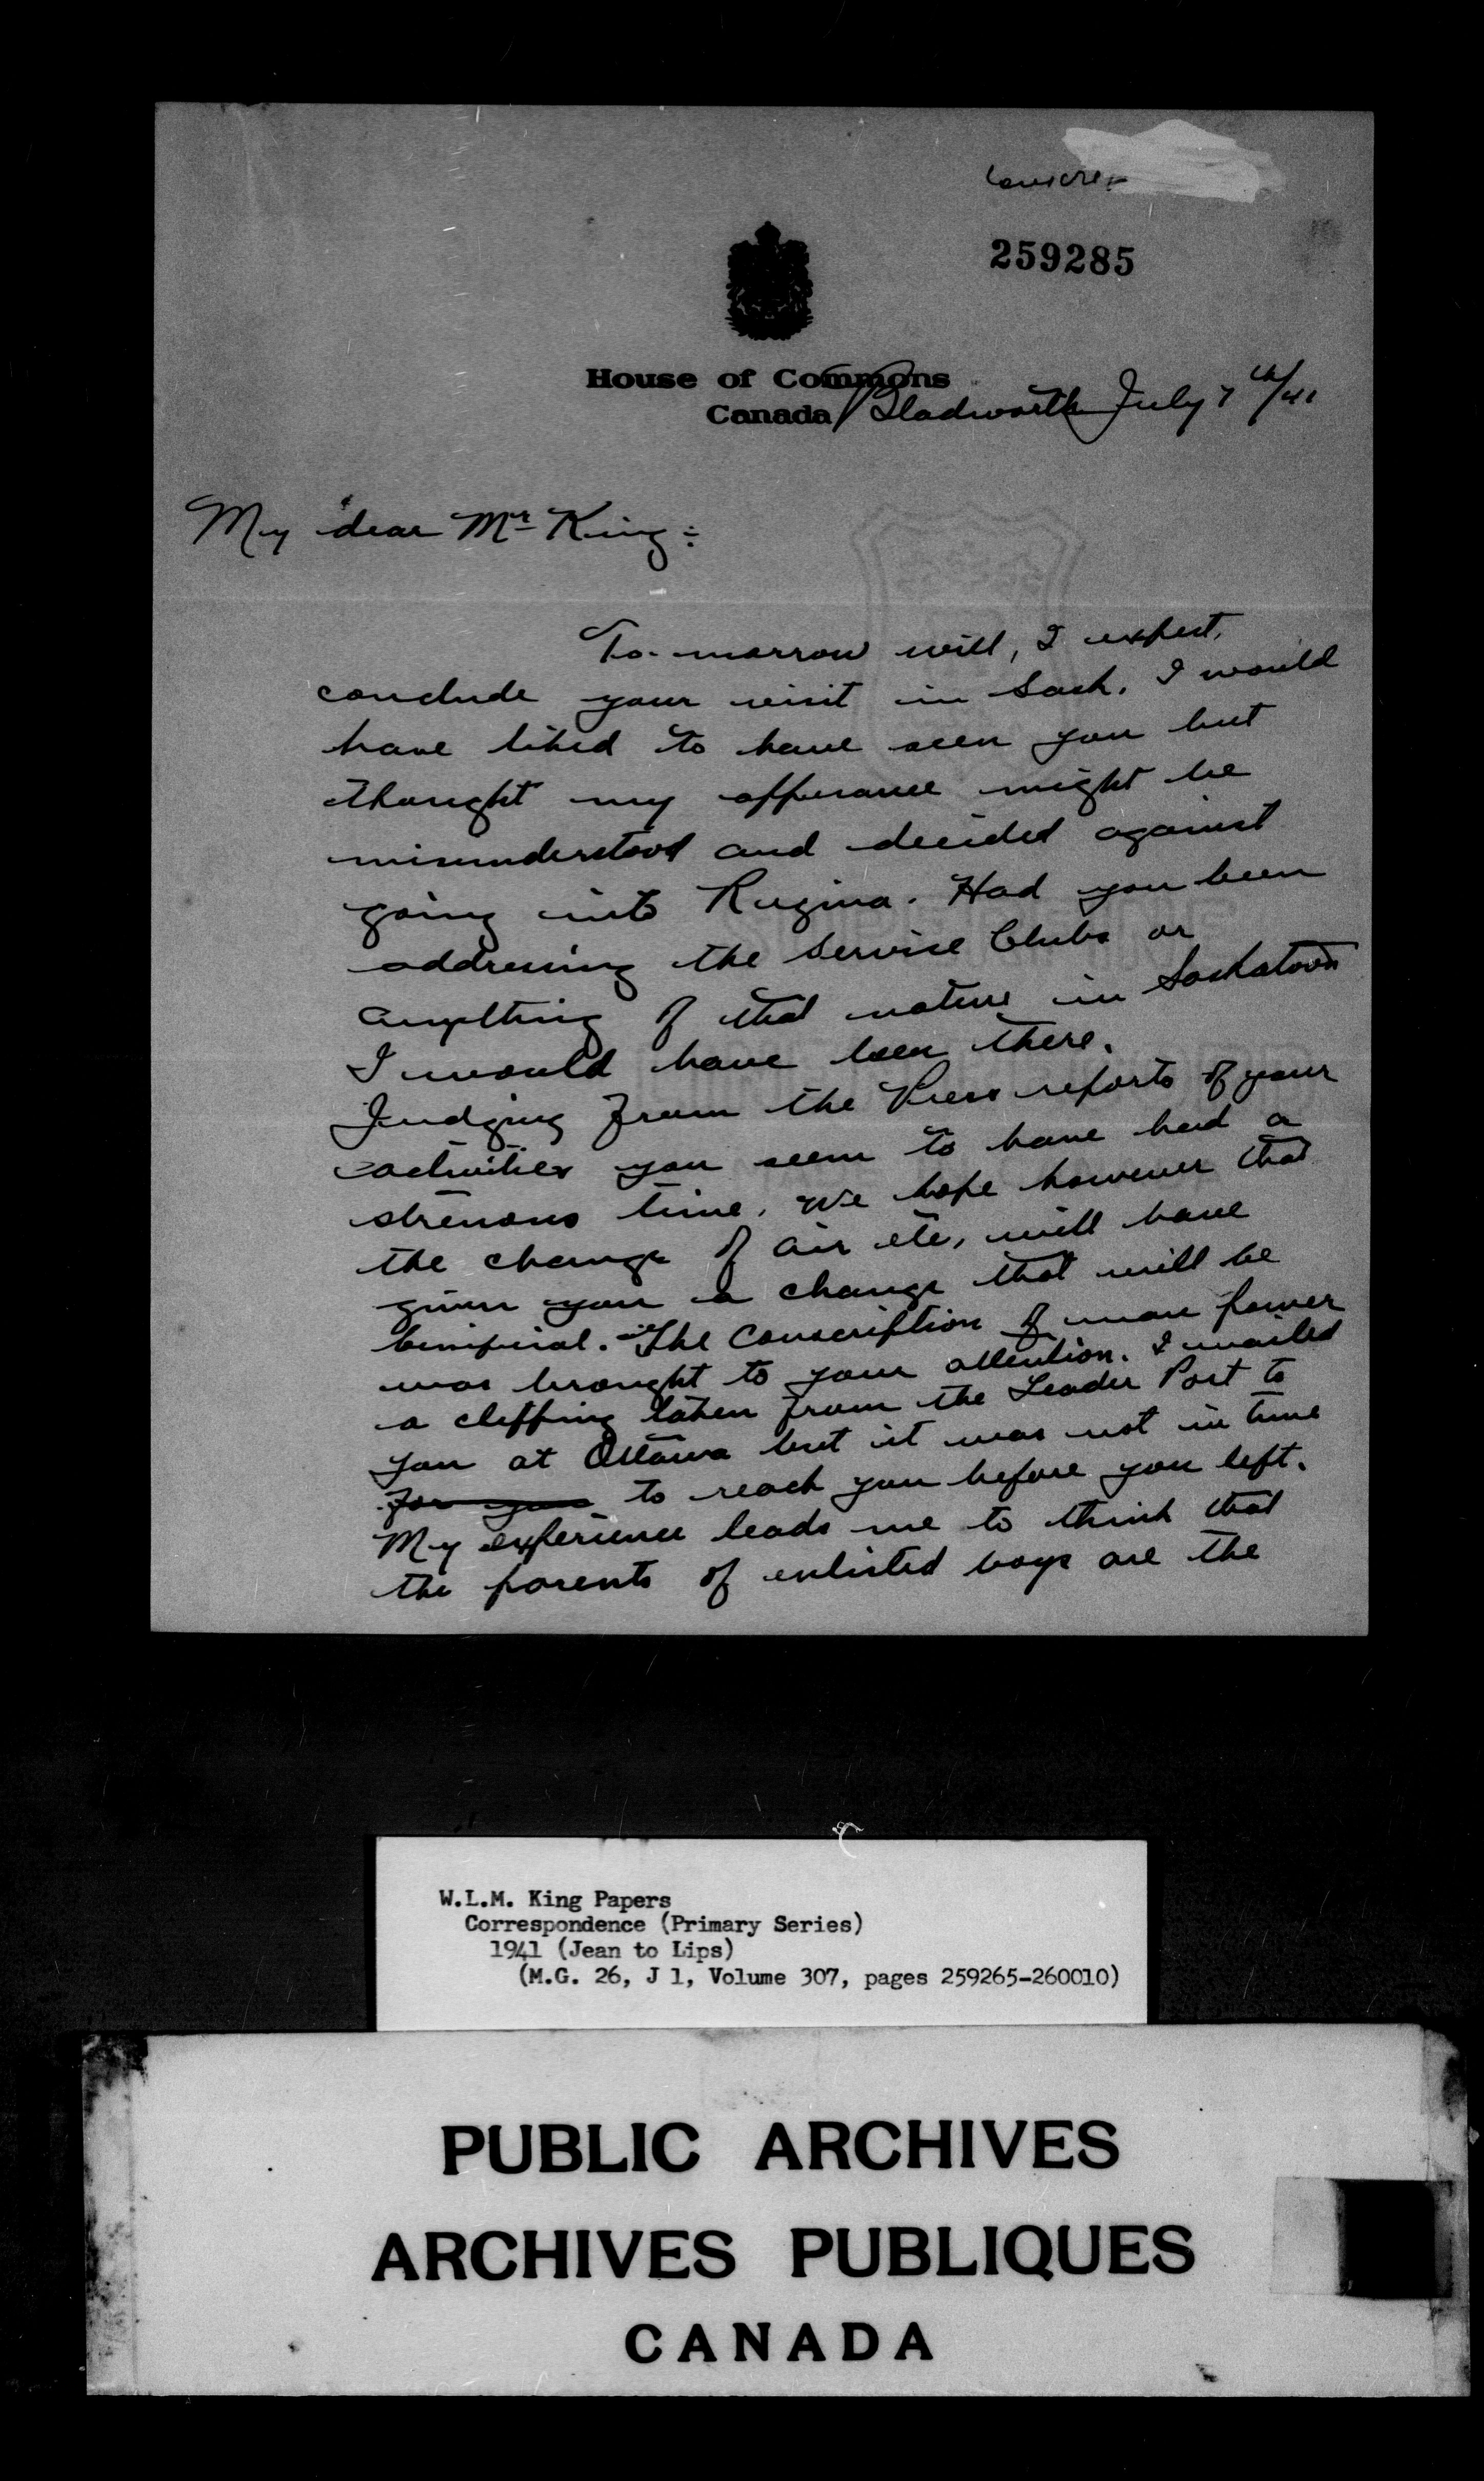 259285
House of Commons
Canada Bladworth July 7th/41
My dear Mr King:
To-morrow will, I expect,
conclude your visit in Sask. I would
have liked to have seen you but
thought my apperance might be
misunderstood and decided against
going into Regina. Had you been
addressing the Service Clubs or
anything of that nature in Saskatoon
I would have been there.
Judging from the Press reports of your
activities you seem to have had a
strenous time. We hope however that
the change of air etc, will have
given you a change that will be
benificial. The Conscription of man power
was brought to your attention. I mailed
a clipping taken from the Leader Post to
you at Ottawa but it was not in time
for you to reach you before you left.
My experience leads me to think that
the parents of enlisted boys are the
W.L.M. King Papers
Correspondence (Primary Series)
1941 (Jean to Lips)
(M.G. 26, J 1, Volume 307, pages 259265-260010)
PUBLIC ARCHIVES
ARCHIVES PUBLIQUES
CANADA